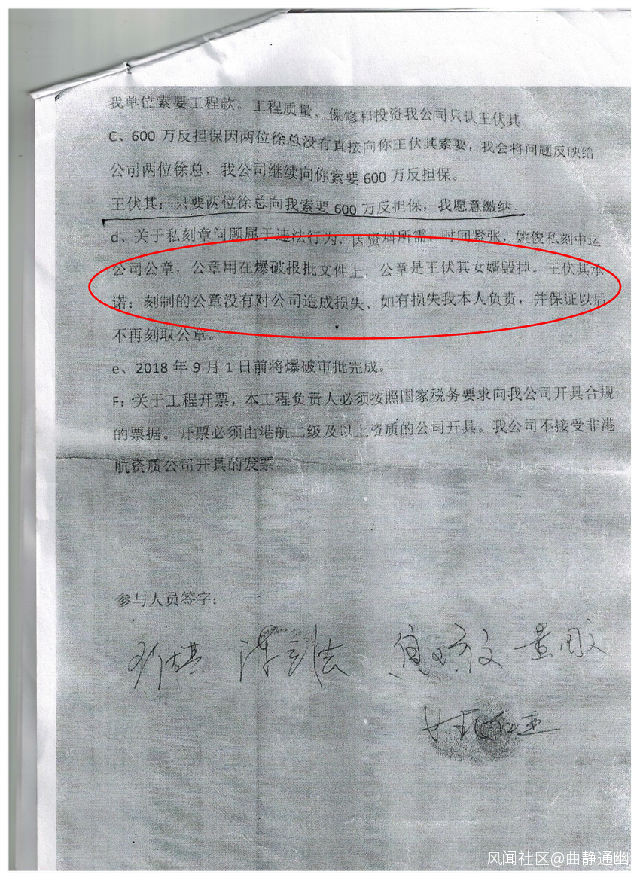 我单位索要工程款，工程质量，保修和投资我公司只认王伏其
C、600 万反担保因两位徐总没有直接向你王伏其索要，我会将问题反映给
公司两位徐总，我公司继续向你索要 600 万反担保。
王伏其：只要两位徐总向我索要 600 万反担保，我愿意缴纳
d、关于私刻章问题属于违法行为，因资料所需，时间紧张，
公司公章，公章用在爆破报批文件上，公章是王伏其女婿毁掉。王伏其承
诺：刻制的公章没有对公司造成损失、如有损失我本人负责，并保证以后
不再刻取公章。
e、2018 年 9 月 1 日前将爆破审批完成。
F：关于工程开票，本工程负责人必须按照国家税务要求向我公司开具合规
的票据。开票必须由港航二级及以上资质的公司开具。我公司不接受非港
航资质公司开具的发票
参与人员签字：
风闻社区@曲静通幽